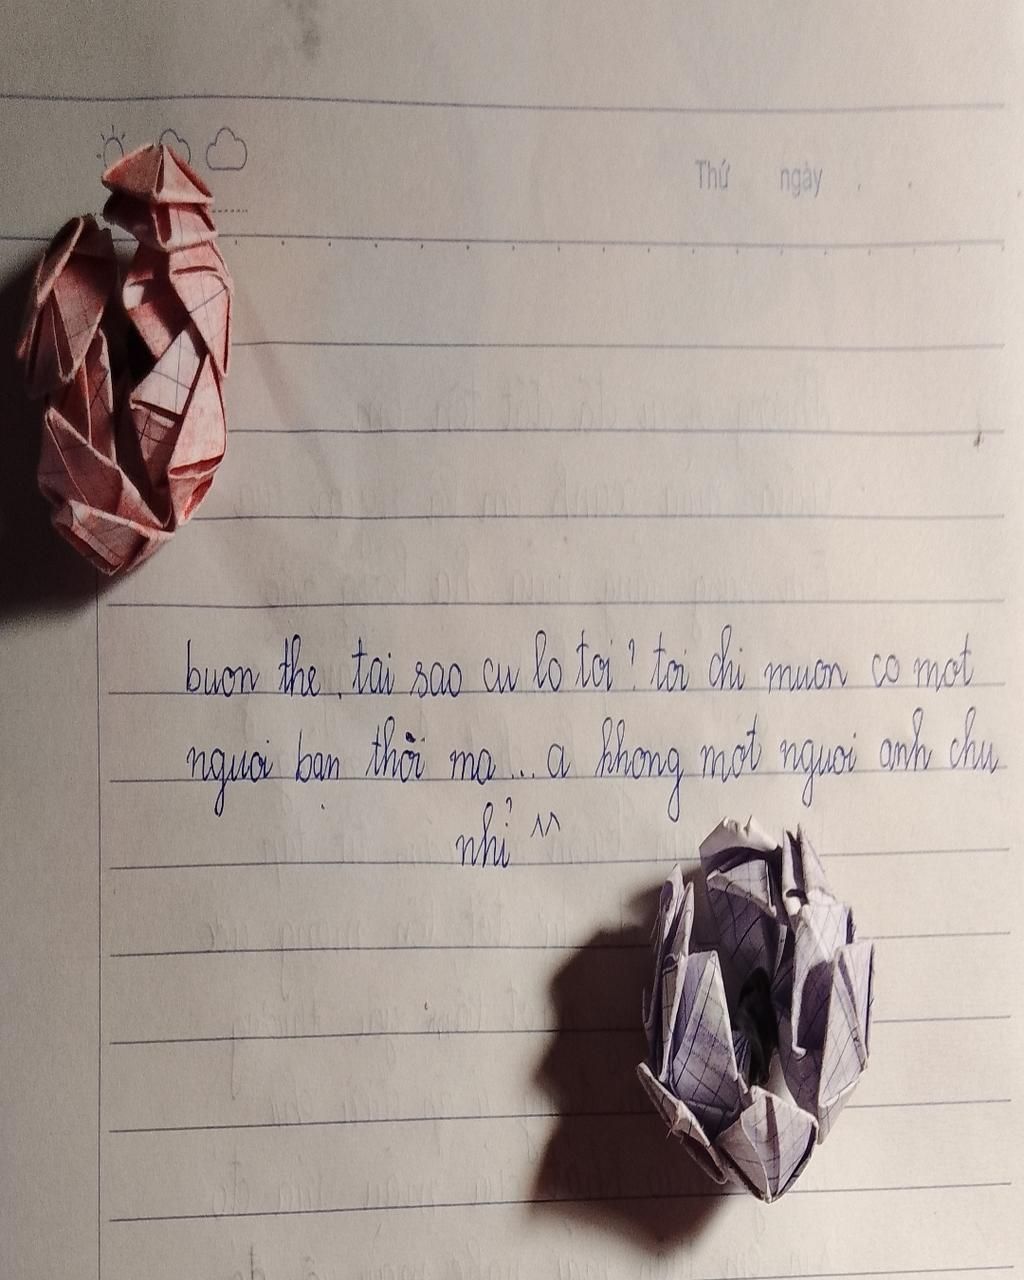 Thứ ngày . .
buon the. tai sao cu lo toi? toi chi muon co mot
nguoi bạn thời ma... a không mot nguoi anh chu
nhỉ ^^